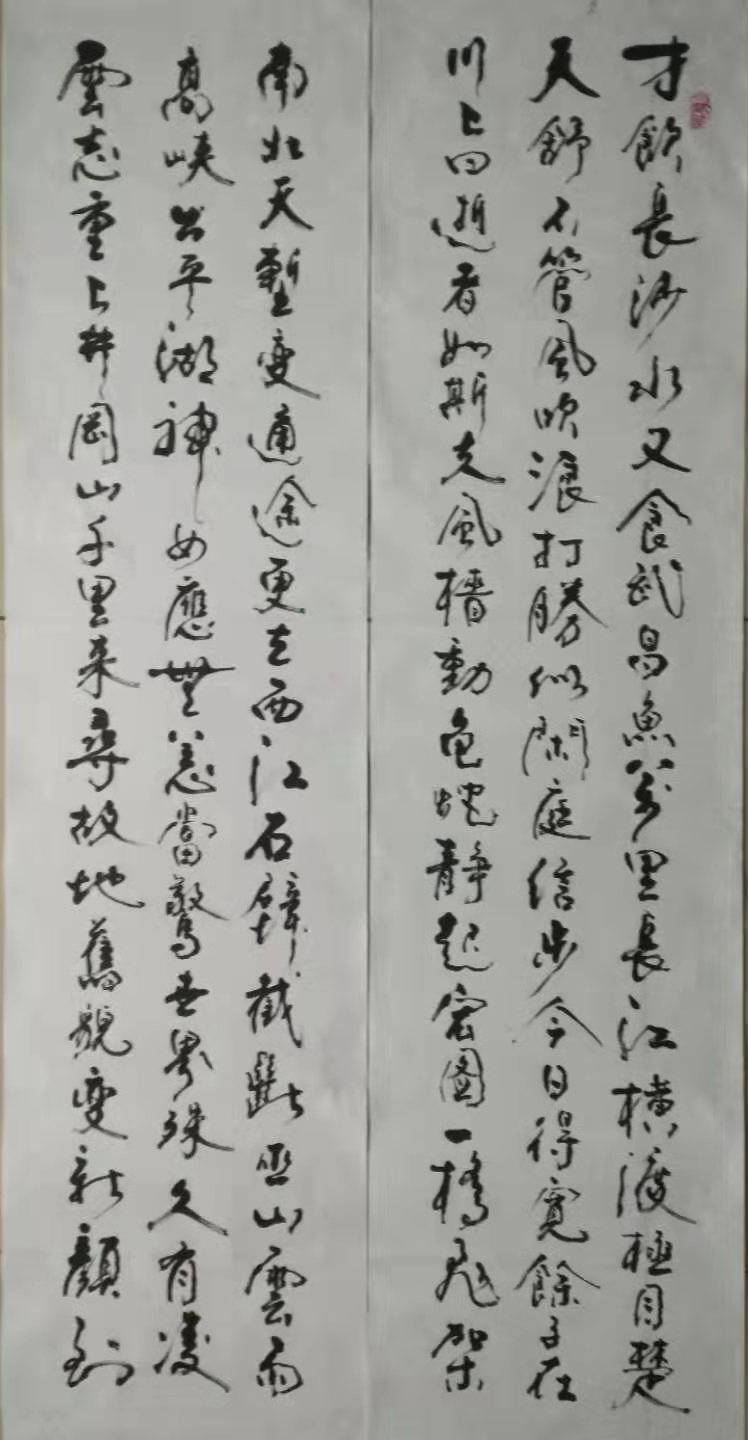 才飲長沙水又食武昌魚萬里長江橫渡極目楚
天舒不管風吹浪打勝似閑庭信步今日得寬餘子在
川上曰逝者如斯夫風檣動龜蛇靜起宏圖一橋飛架
南北天塹變通途更立西江石壁截斷巫山雲雨
高峽出平湖神女應無恙當驚世界殊久有凌
雲志重上井岡山千里来尋故地舊貌變新顏到